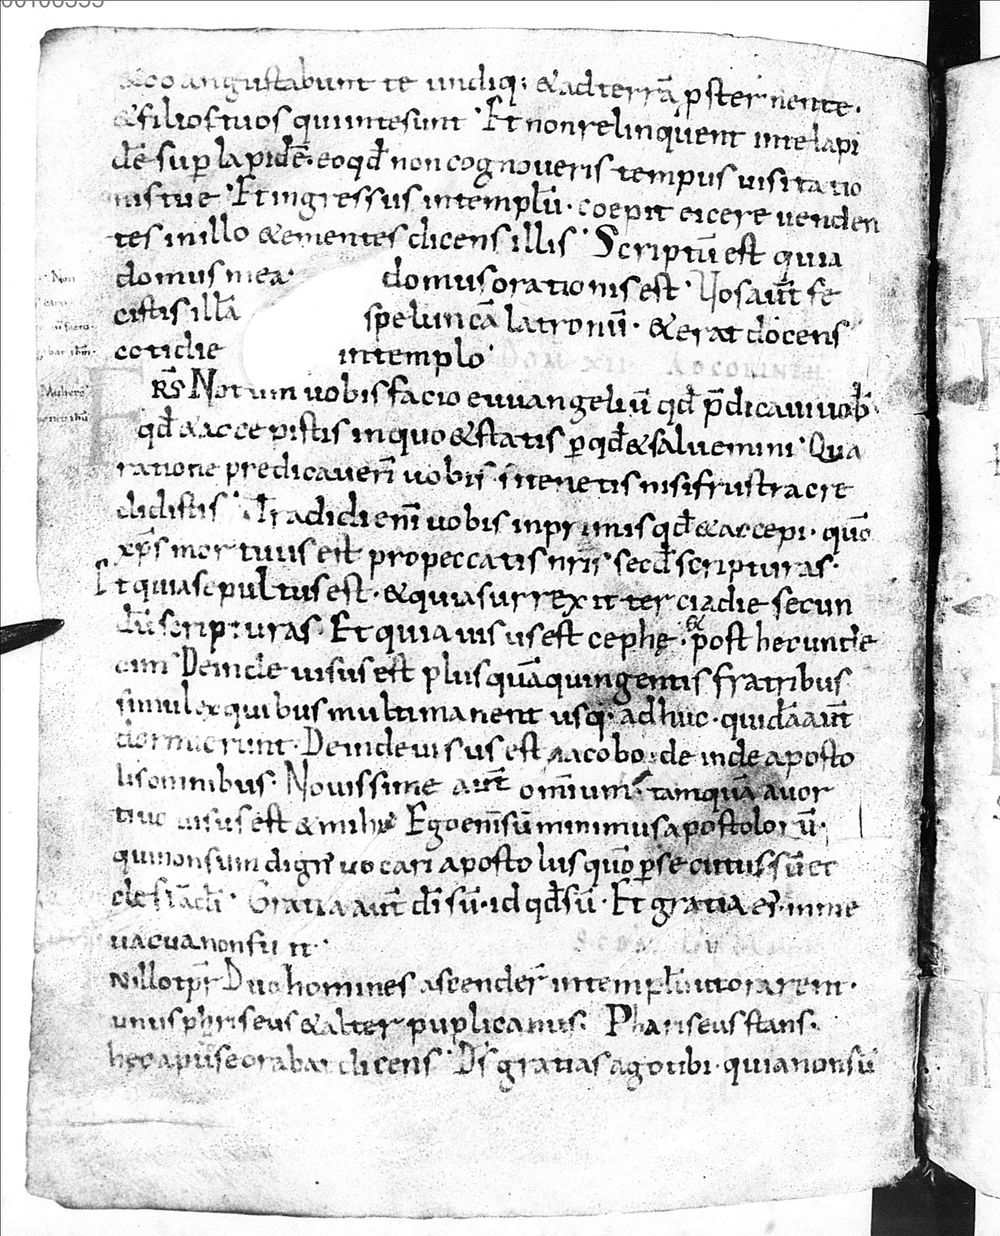 &coangustabunt te undiq; &adterrā ꝓsternente·
&filiostuos quiintesunt · Et nonrelinquent intelapi
dē sup̱ lapidē· eoqđ noncognoueris tempus uisitatio
nistue · Et ingressus intemplū· coepit eicere uenden
tes inillo &ementes dicens illis · Scriptū est quia
domus mea· domus orationis est · Uos aūt fe
cistis illā speluncā latronū· &erat docens
cotidie intemplo·
FRS̄ Notum uobis facio euuangeliū qđ p̄dicaui uob̄
qđ &accepistis inquo &statis p̱ qđ &saluemini · Qua
ratione predicauerī uobis· sitenetis nisifrustra cre
didistis · Tradidi enī uobis inprimis qđ &accepi· quō
xp̄s mortuus est propeccatis nr̄is secđ scripturas·
Et quia sepultus est· &quia surrexit terciadie secun
dū scripturas· Et quia uisus est cephe· & post hec unde
cim · Deinde uisus est plus quā quingentis fratribus
simul exquibus multi manent usq· adhuc· quidā aūt
dormierunt· Deinde uisus est iacobo· de inde aposto
lis omnibus· Nouissime aūt omnium· tamquā abor
tiuo uisus est &mihi· Ego enī sū minimus apostolorū·
qui nonsum dign' uocari apostolus quō p̱secutus sū ec
clesiā dī · Gratia aūt dī sū· id qđ sū · Et gratia ei' inme
uacua nonfuit·
Nillo tp̄r Duo homines ascender̄ intemplū utorarent·
unus phriseus &alter puplicanus· Phariseus stans·
hęc apud se orabat dicens · Ds̄ gratias ago tibi· quia nonsū